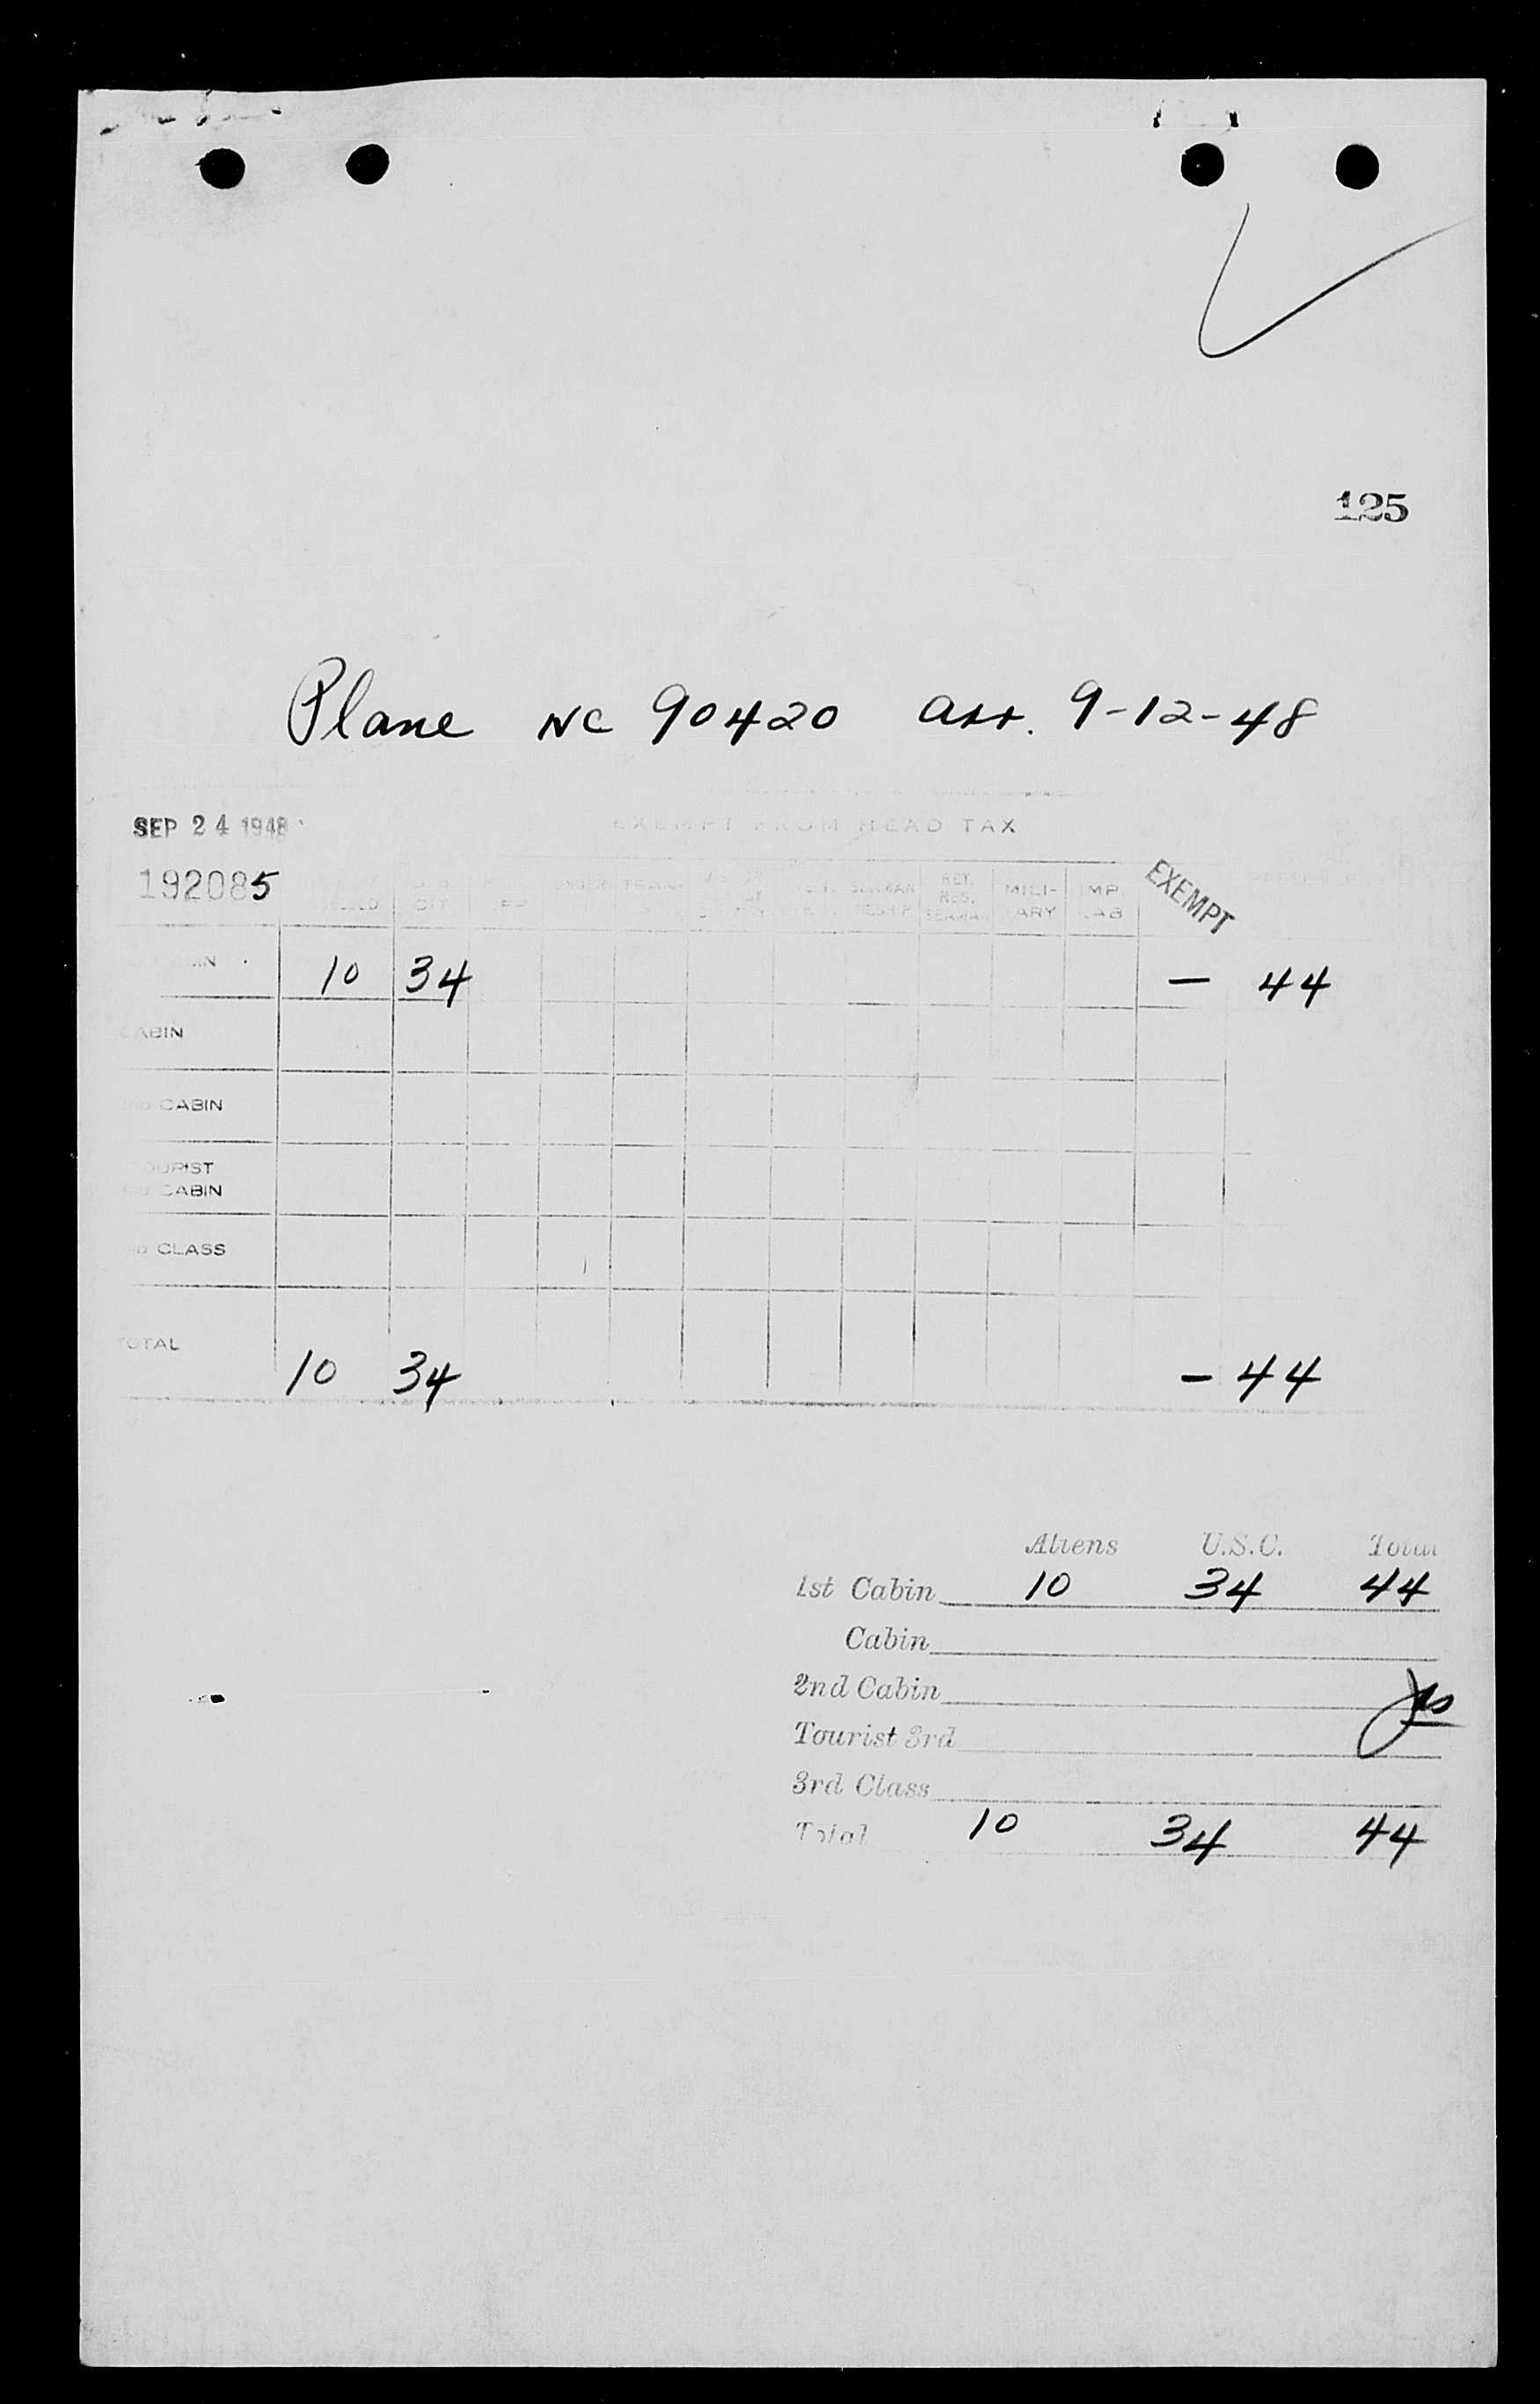 125
Plane NC 90420 arr. 9-12-48
SEP 24 1948
EXEMPT FROM HEAD TAX
192085
CIT. UNDER TRAN- SEAMAN RET. RES. SEAMAN MILI- TARY IMP LAB EXEMPT
10 34 — 44
CABIN
CABIN
TOURIST
CABIN
CLASS
TOTAL
10 34 — 44
Aliens U.S.C. Total
1st Cabin 10 34 44
Cabin
2nd Cabin
Tourist 3rd
3rd Class
Total 10 34 44